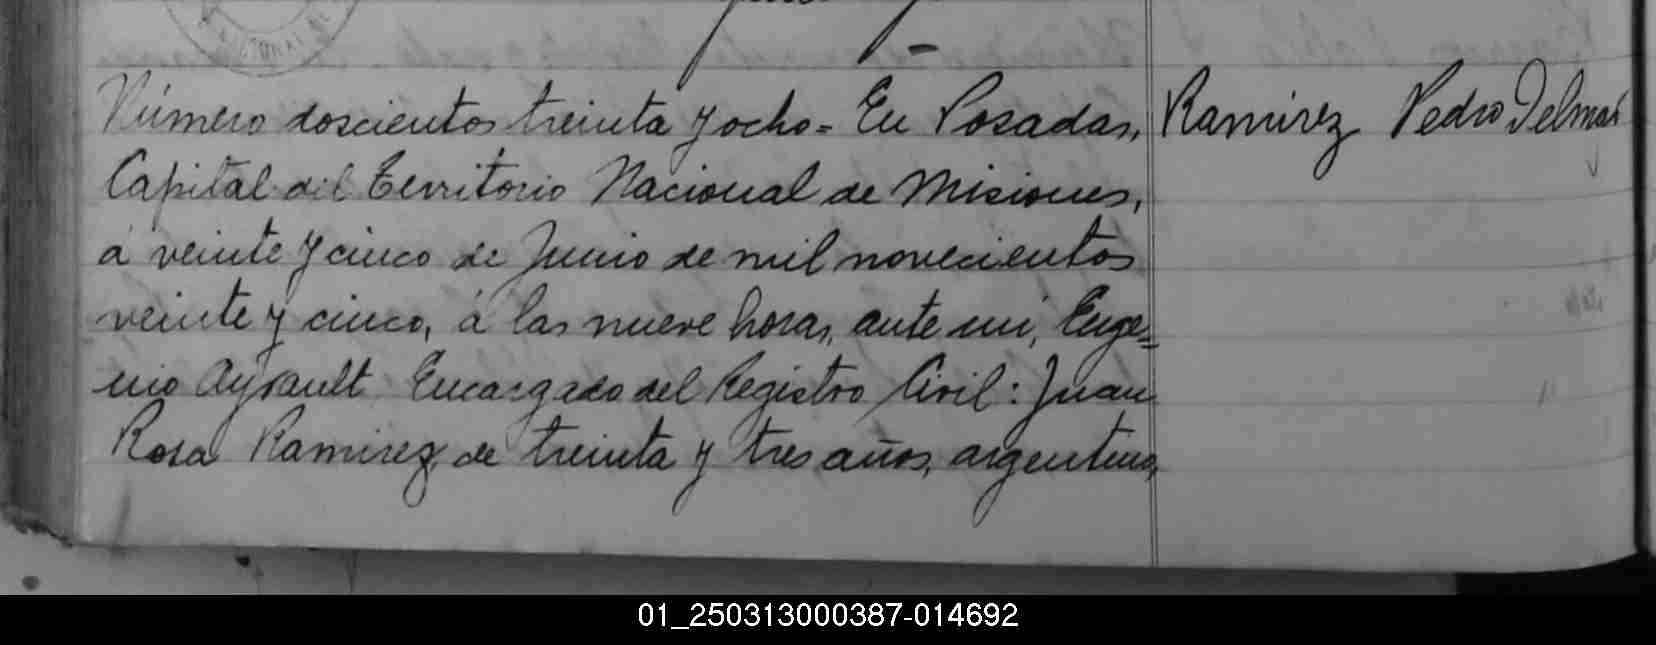 Número doscientos treinta y ocho= En Posadas,
Capital del Territorio Nacional de Misiones,
á veinte y cinco de Junio de mil novecientos
veinte y cinco, á las nueve horas, ante mi, Euge=
nio Ayrault Encargado del Registro Civil: Juan
Rosa Ramirez, de treinta y tres años, argentino,
Ramirez Pedro Delmar
01_250313000387-014692